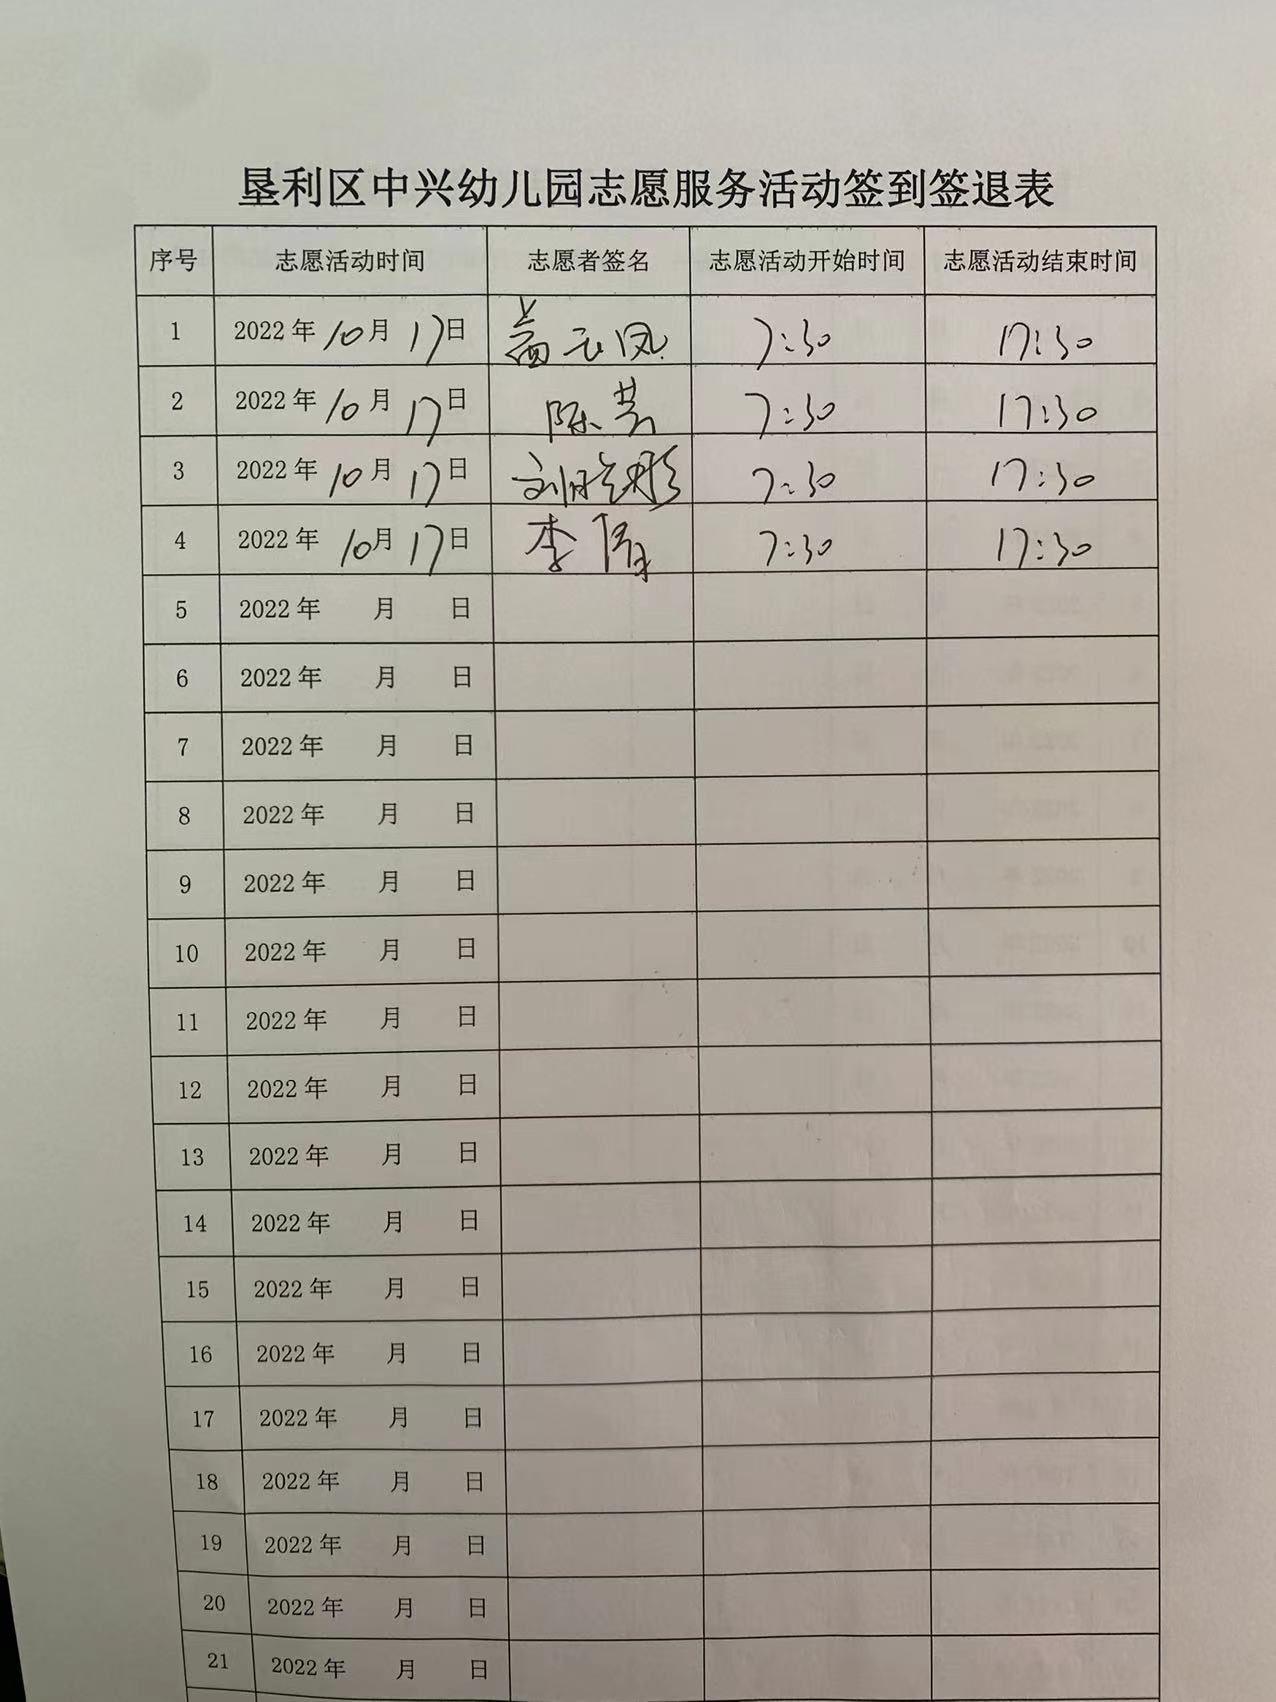 垦利区中兴幼儿园志愿服务活动签到签退表
序号 志愿活动时间 志愿者签名 志愿活动开始时间 志愿活动结束时间
1 2022年10月17日 盖云凤 7:30 17:30
2 2022年10月17日 陈芸 7:30 17:30
3 2022年10月17日 刘晓彤 7:30 17:30
4 2022年10月17日 李倩 7:30 17:30
5 2022年 月 日
6 2022年 月 日
7 2022年 月 日
8 2022年 月 日
9 2022年 月 日
10 2022年 月 日
11 2022年 月 日
12 2022年 月 日
13 2022年 月 日
14 2022年 月 日
15 2022年 月 日
16 2022年 月 日
17 2022年 月 日
18 2022年 月 日
19 2022年 月 日
20 2022年 月 日
21 2022年 月 日